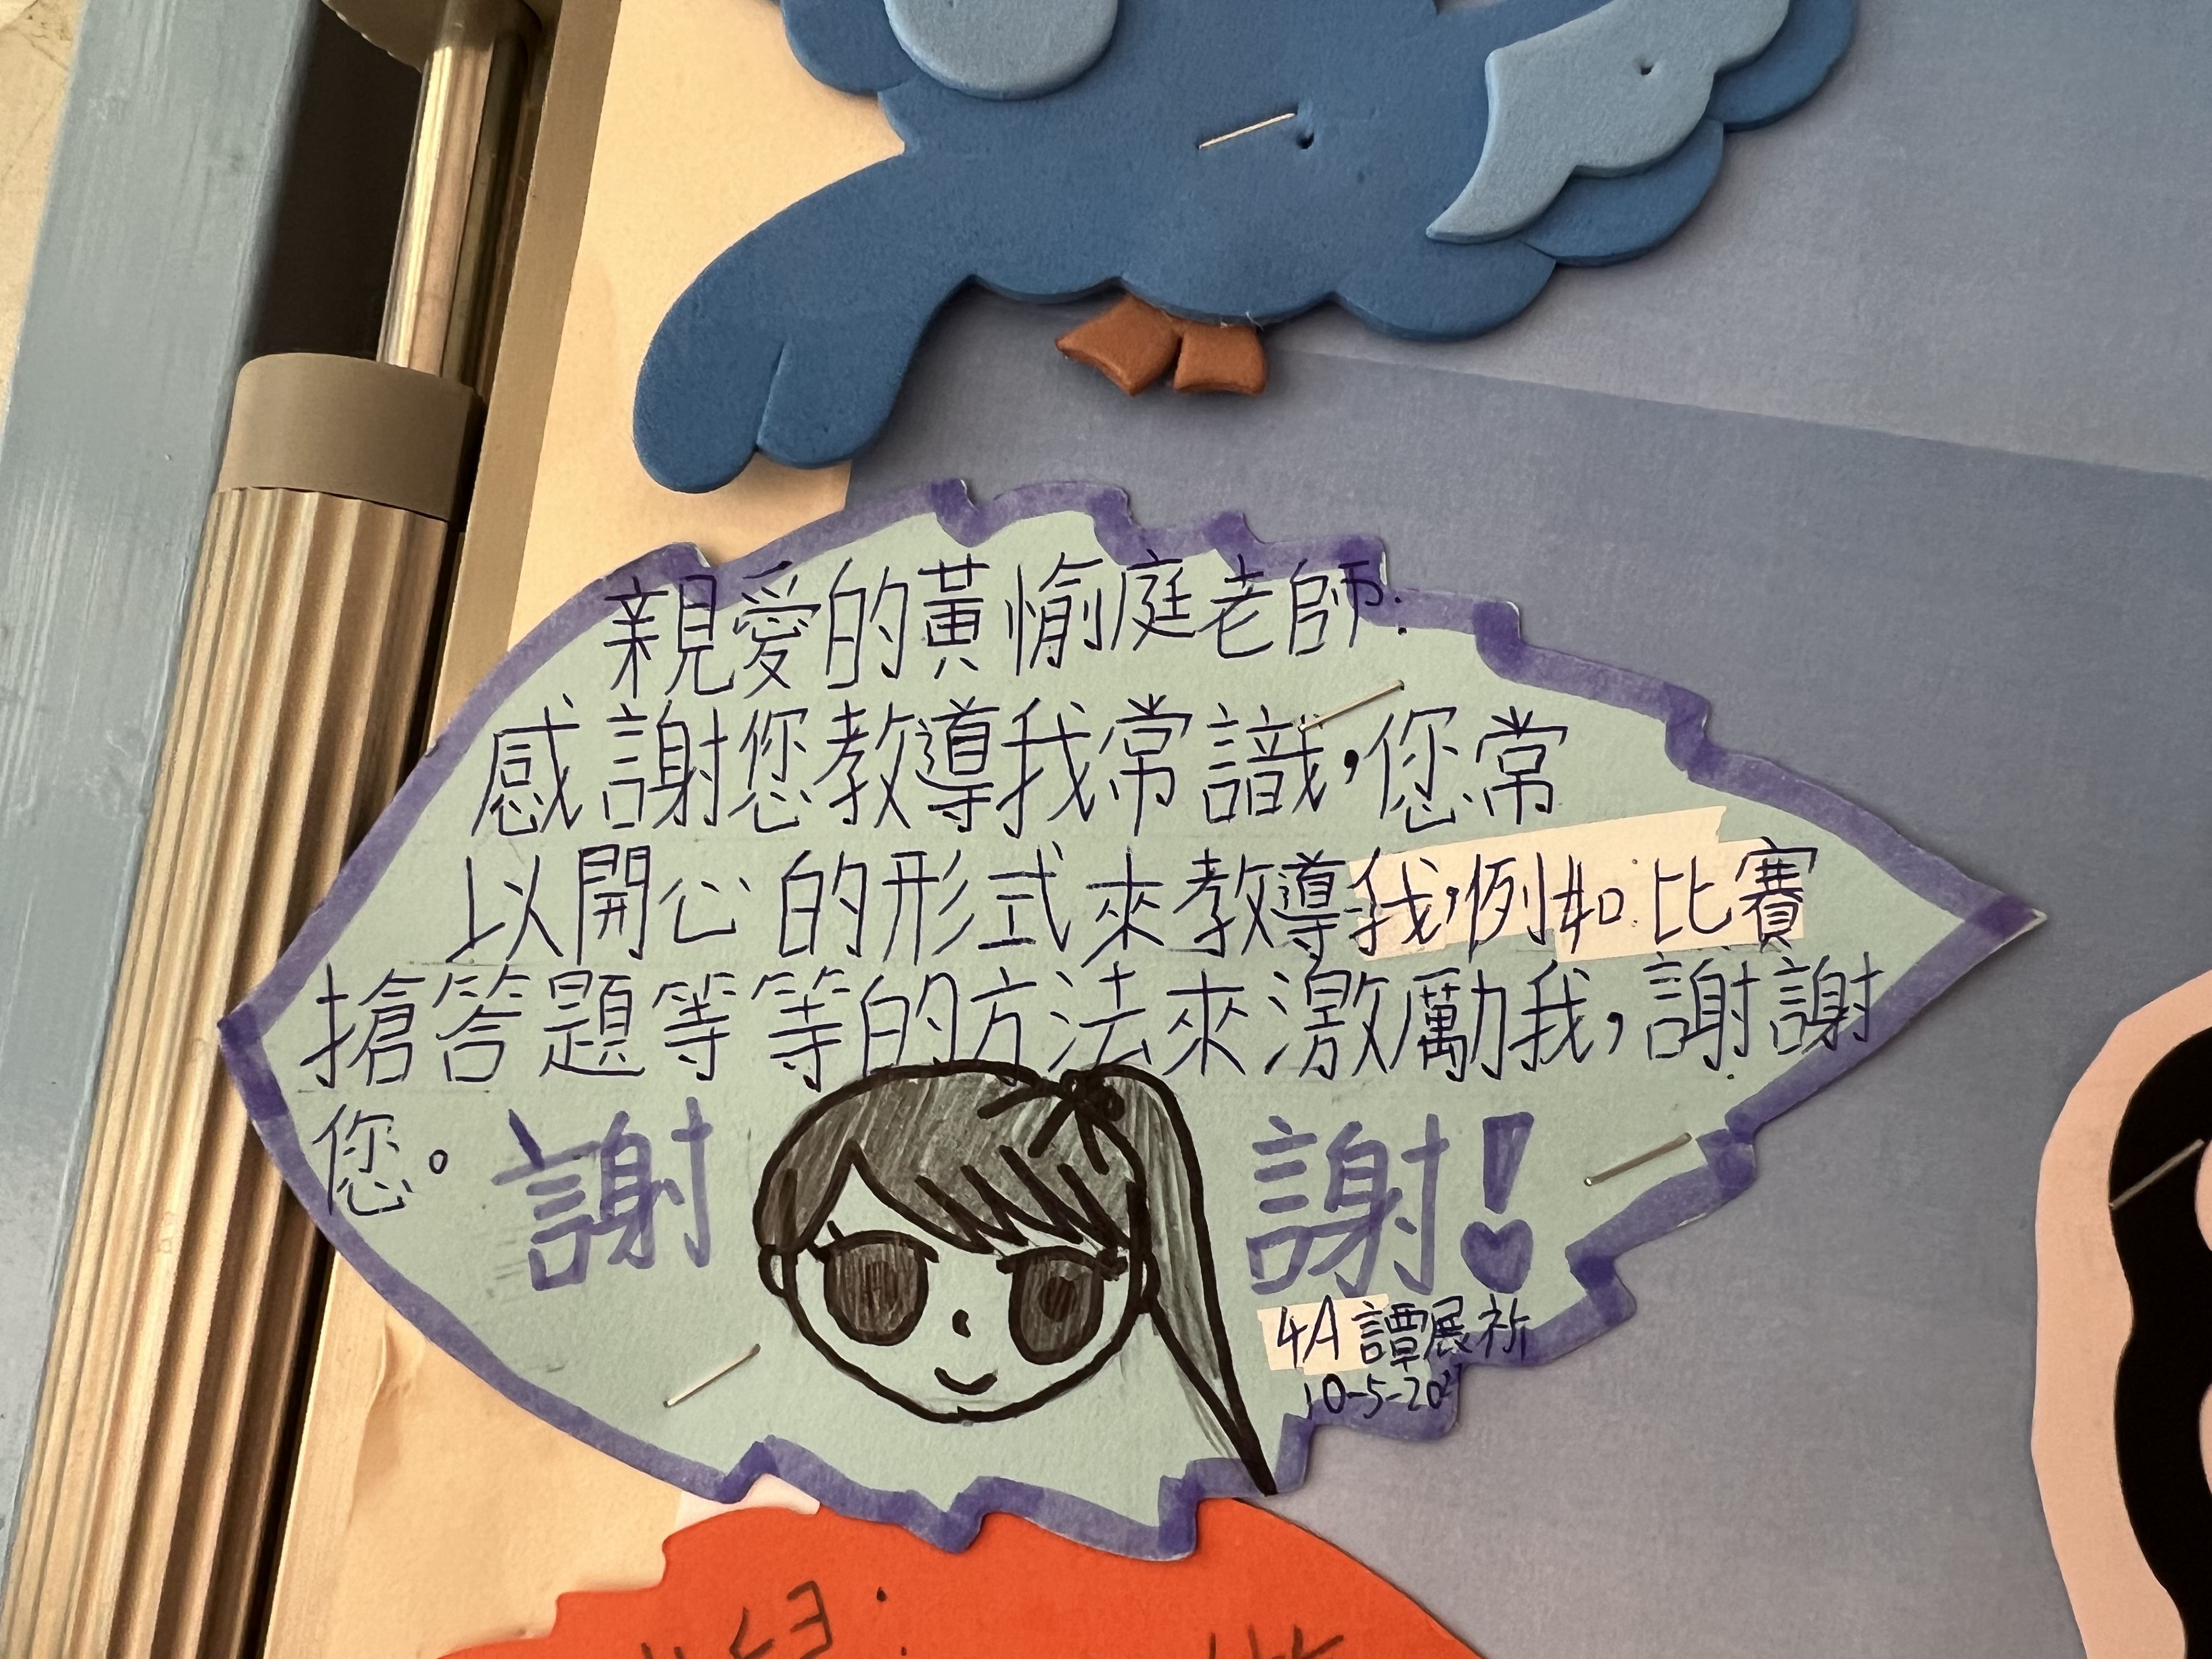 親愛的黃愉庭老師:
感謝您教導我常識,您常
以開心的形式來教導我,例如比賽
搶答題等等的方法來激勵我,謝謝
您。
謝謝!
4A 譚展祈
10-5-20